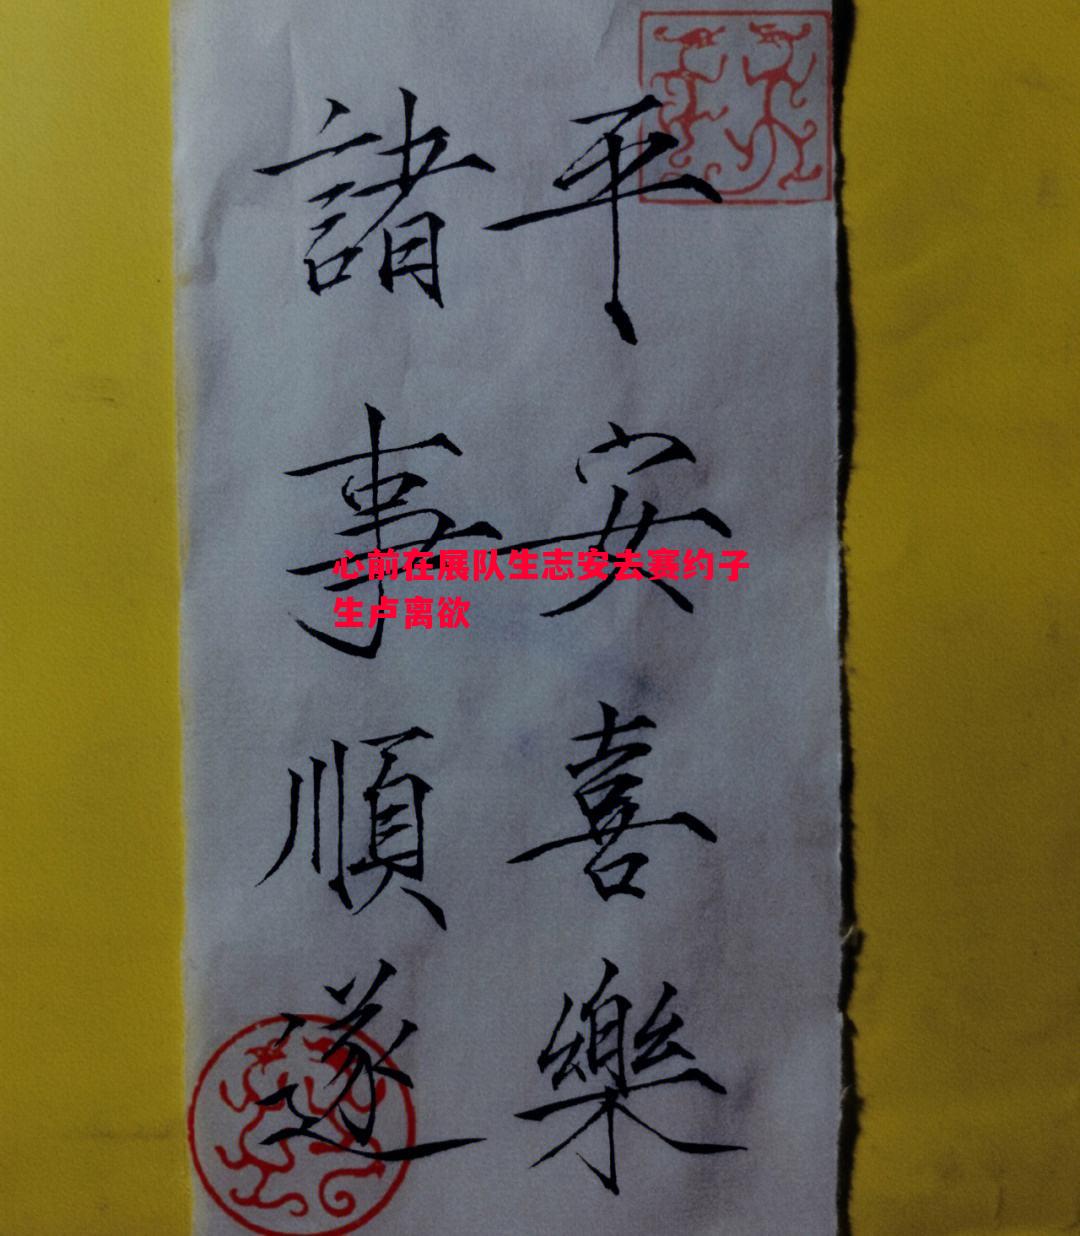 平安喜樂
諸事順遂
心前在展队生志安去赛约子
生卢离欲